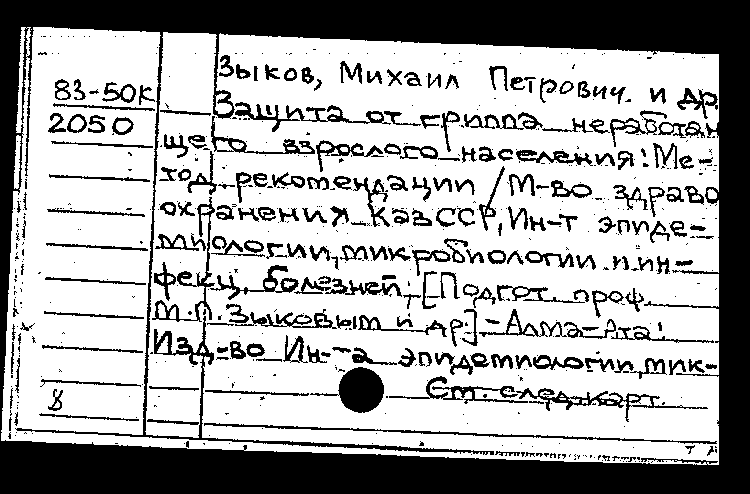 Зыков, Михаил Петрович. и др
83-50К
Защита от гриппа неработаю
2050
щего взрослого населения: Ме-
тод. рекомендации / М-во здраво
охранения КазССР, Ин-т эпиде-
миологии, микробиологии и ин-
фекц. болезней; [Подгот. проф.
М.П. Зыковым и др.] - Алма-Ата:
Изд-во Ин-та эпидемиологии, мик-
См. след. карт.
8